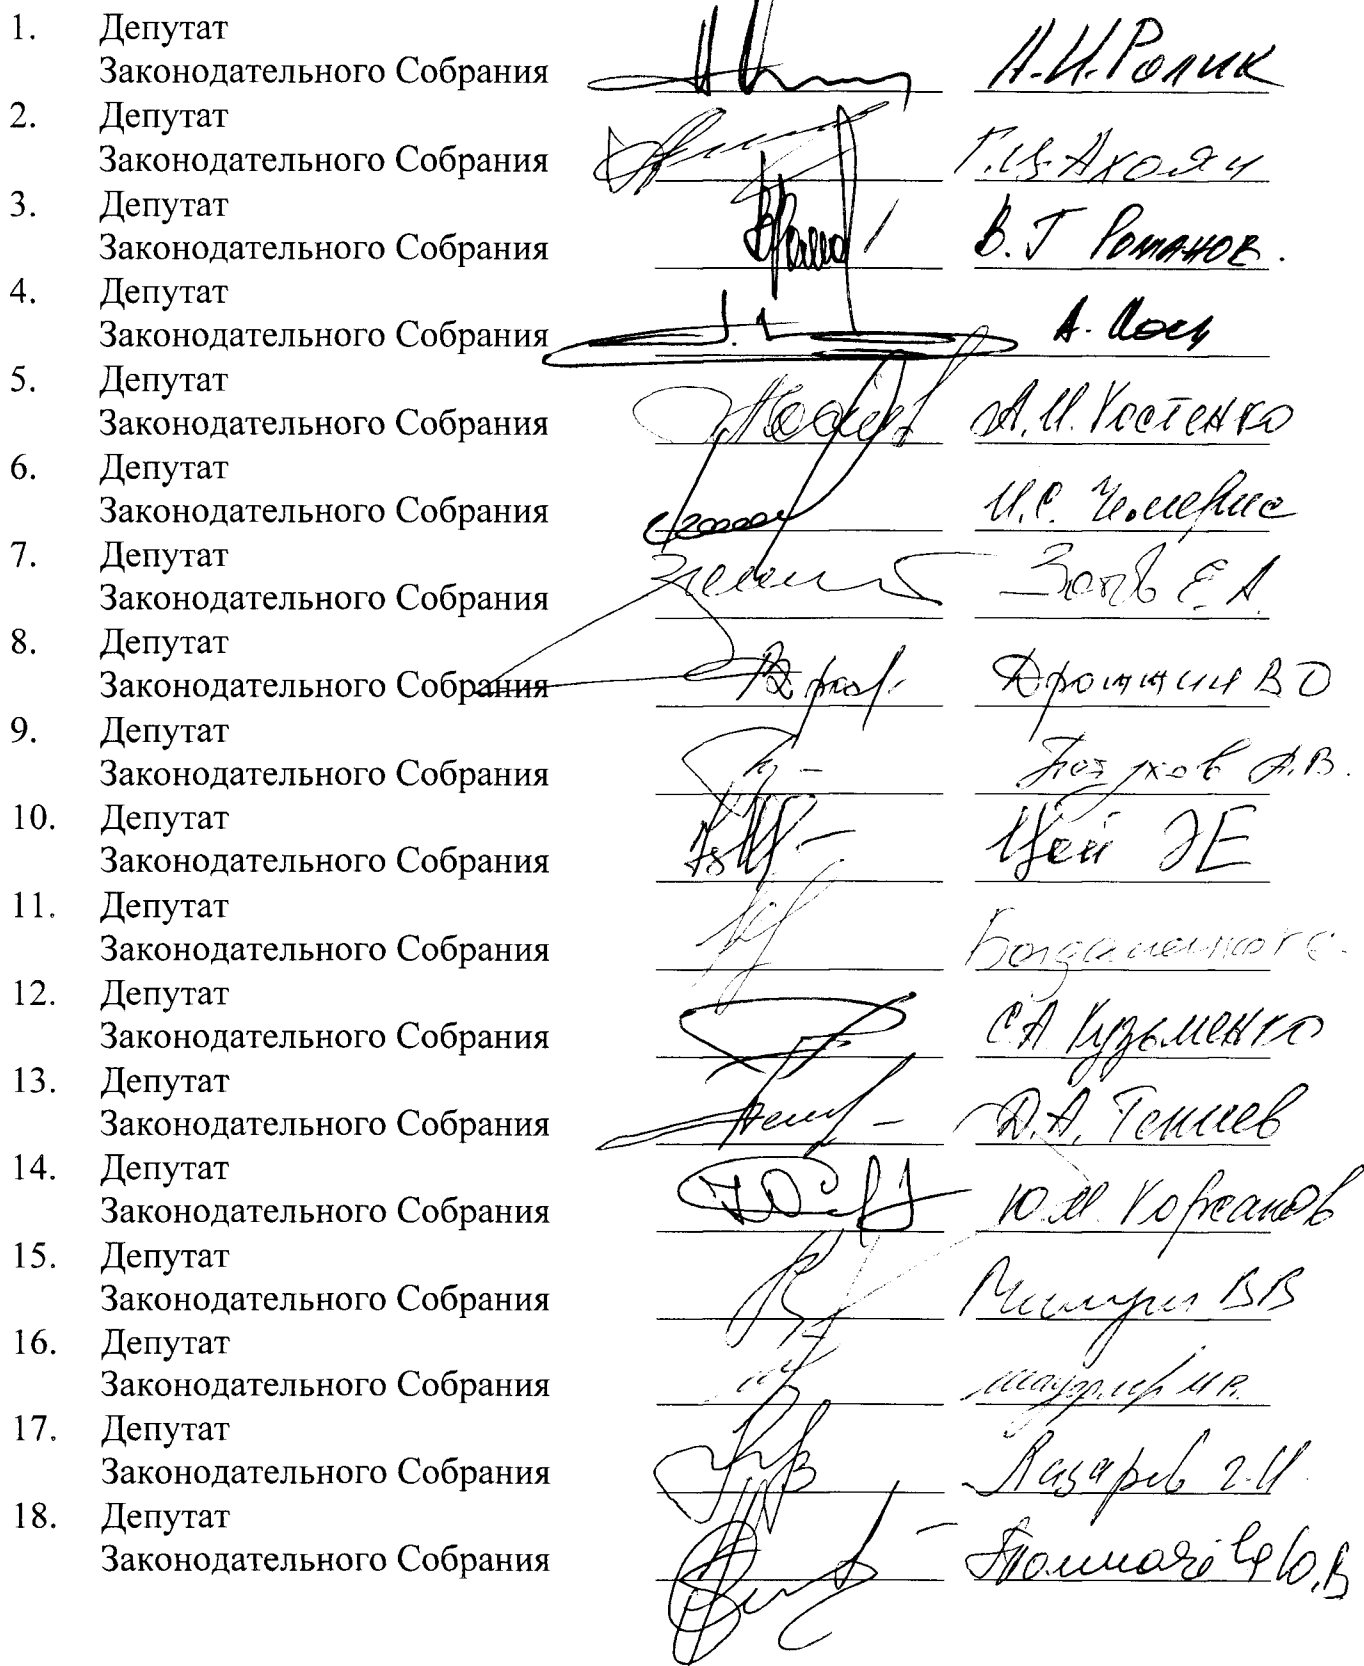 1. Депутат
Законодательного Собрания А.И.Ролик
2. Депутат
Законодательного Собрания Г.Ц. Ахоян
3. Депутат
Законодательного Собрания В.Г Романов.
4. Депутат
Законодательного Собрания А.
5. Депутат
Законодательного Собрания А.И. Костенко
6. Депутат
Законодательного Собрания И.С. Чемерис
7. Депутат
Законодательного Собрания Зотов Е.А.
8. Депутат
Законодательного Собрания В О
9. Депутат
Законодательного Собрания Петухов А.В.
10. Депутат
Законодательного Собрания Цой ЭЕ
11. Депутат
Законодательного Собрания
12. Депутат
Законодательного Собрания СА Кузьменко
13. Депутат
Законодательного Собрания Д.А. Текиев
14. Депутат
Законодательного Собрания Ю.М. Корсаков
15. Депутат
Законодательного Собрания ВВ
16. Депутат
Законодательного Собрания
17. Депутат
Законодательного Собрания Лазарев Г.И.
18. Депутат
Законодательного Собрания Толмачёва Ю.В